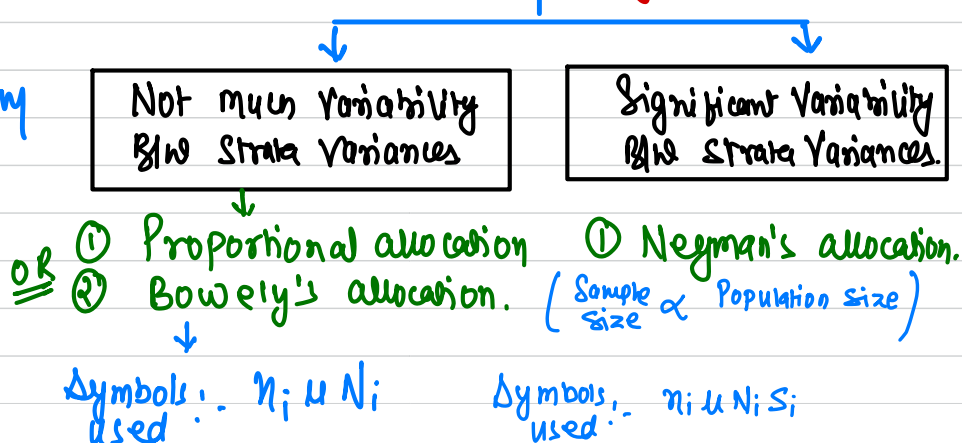 Not much variability
B/w strata variances
Significant Variability
B/w strata Variances.
OR
① Proportional allocation
② Bowely's allocation.
① Neyman's allocation.
(Sample size ∝ Population size)
Symbols used :- ni ∝ Ni
Symbols used :- ni ∝ Ni Si